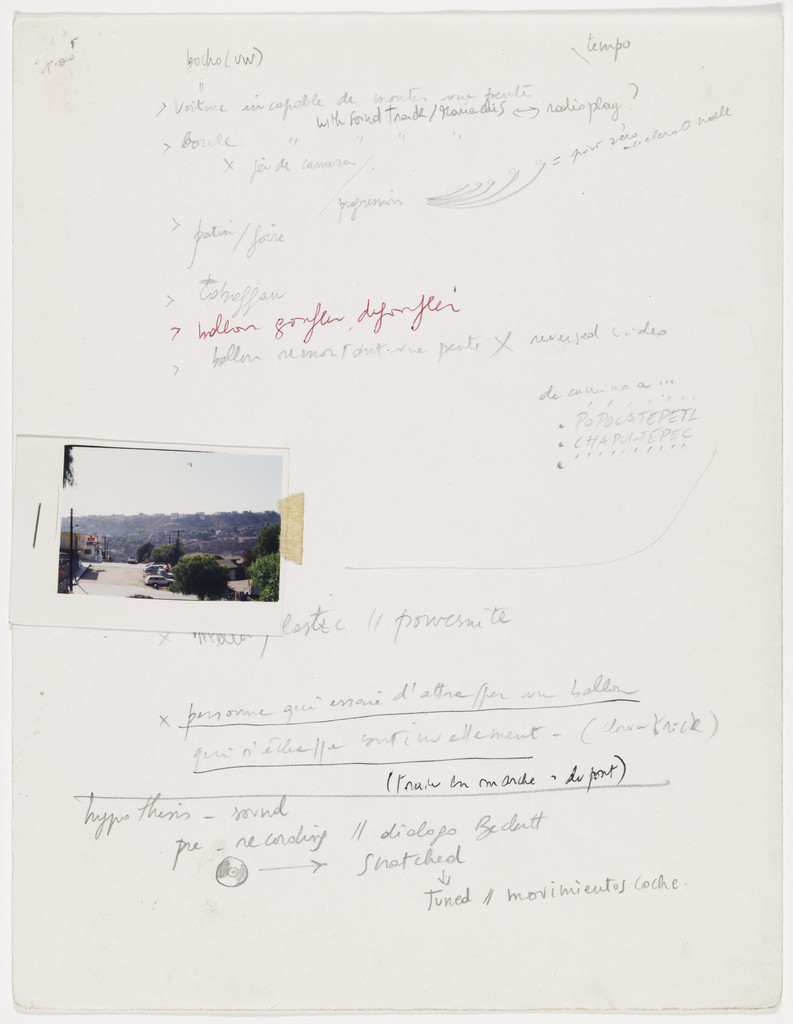 bocho (VW)
tempo
> voiture incapable de monter une pente
with sound track / <-> radio play?
> boule " " " "
x jeu de camera
progression
= point zéro
> patin / foire
> toboggan
> ballon gonfler, dégonfler
> ballon remontant une pente X reversed video
de camino a ...
. POPOCATEPETL
. CHAPULTEPEC
.
x // poursuite
x personne qui essaie d'attrapper un ballon
qui s'échappe continuellement - (clown trick)
(train en marche - du pont)
hypothesis - sound
pre-recording // dialogo Beckett
→ snatched
↓
Tuned // movimientos coche.